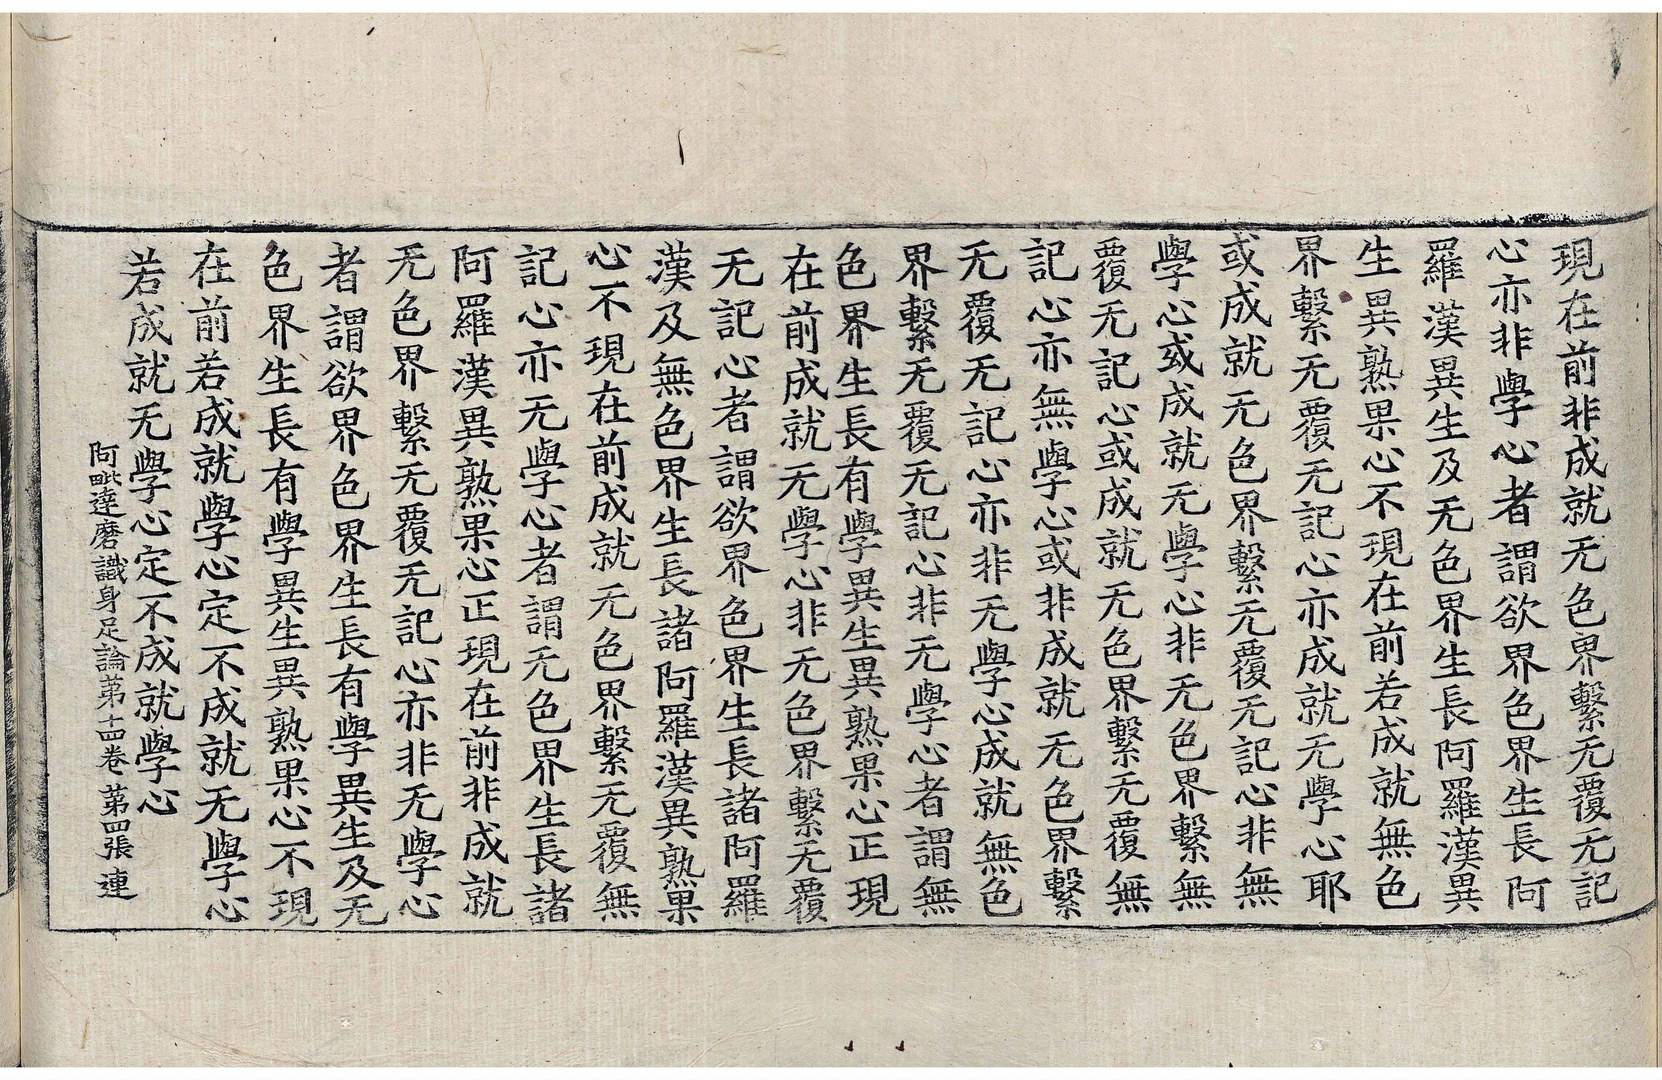 現在前非成就无色界繫无覆无記
心亦非學心者謂欲界色界生長阿
羅漢異生及无色界生長阿羅漢異
生異熟果心不現在前若成就無色
界繫无覆无記心亦成就无學心耶
或成就无色界繫无覆无記心非無
學心或成就无學心非无色界繫無
覆无記心或成就无色界繫无覆無
記心亦無學心或非成就无色界繫
无覆无記心亦非无學心成就無色
界繫无覆无記心非无學心者謂無
色界生長有學異生異熟果心正現
在前成就无學心非无色界繫无覆
无記心者謂欲界色界生長諸阿羅
漢及無色界生長諸阿羅漢異熟果
心不現在前成就无色界繫无覆無
記心亦无學心者謂无色界生長諸
阿羅漢異熟果心正現在前非成就
无色界繫无覆无記心亦非无學心
者謂欲界色界生長有學異生及无
色界生長有學異生異熟果心不現
在前若成就學心定不成就无學心
若成就无學心定不成就學心
阿毗達磨識身足論第十四卷 第四張 連